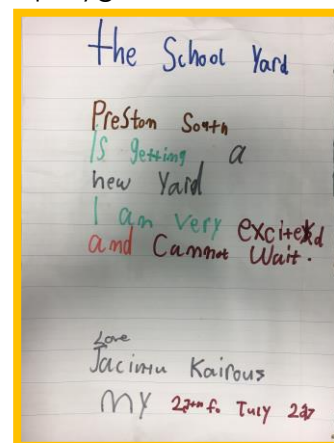 the School Yard
Preston South
Is getting a
new Yard
I am very excited
and Cannot Wait.
Love
Kairouz
My